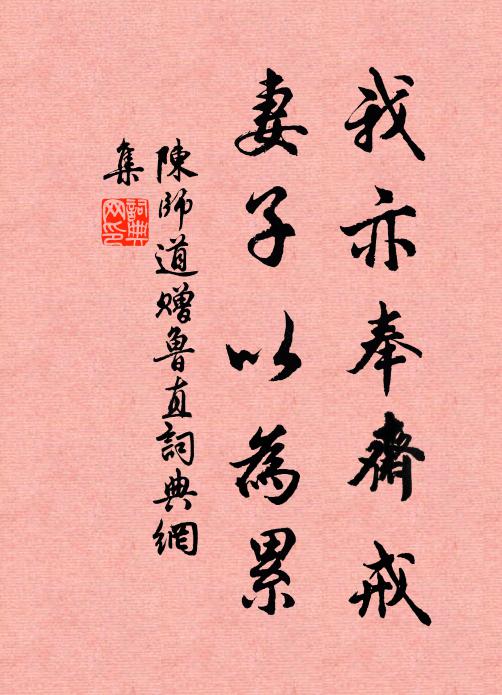 我亦奉齋戒
妻子以為累
陳師道贈魯直詞典網
集
詞典
网印